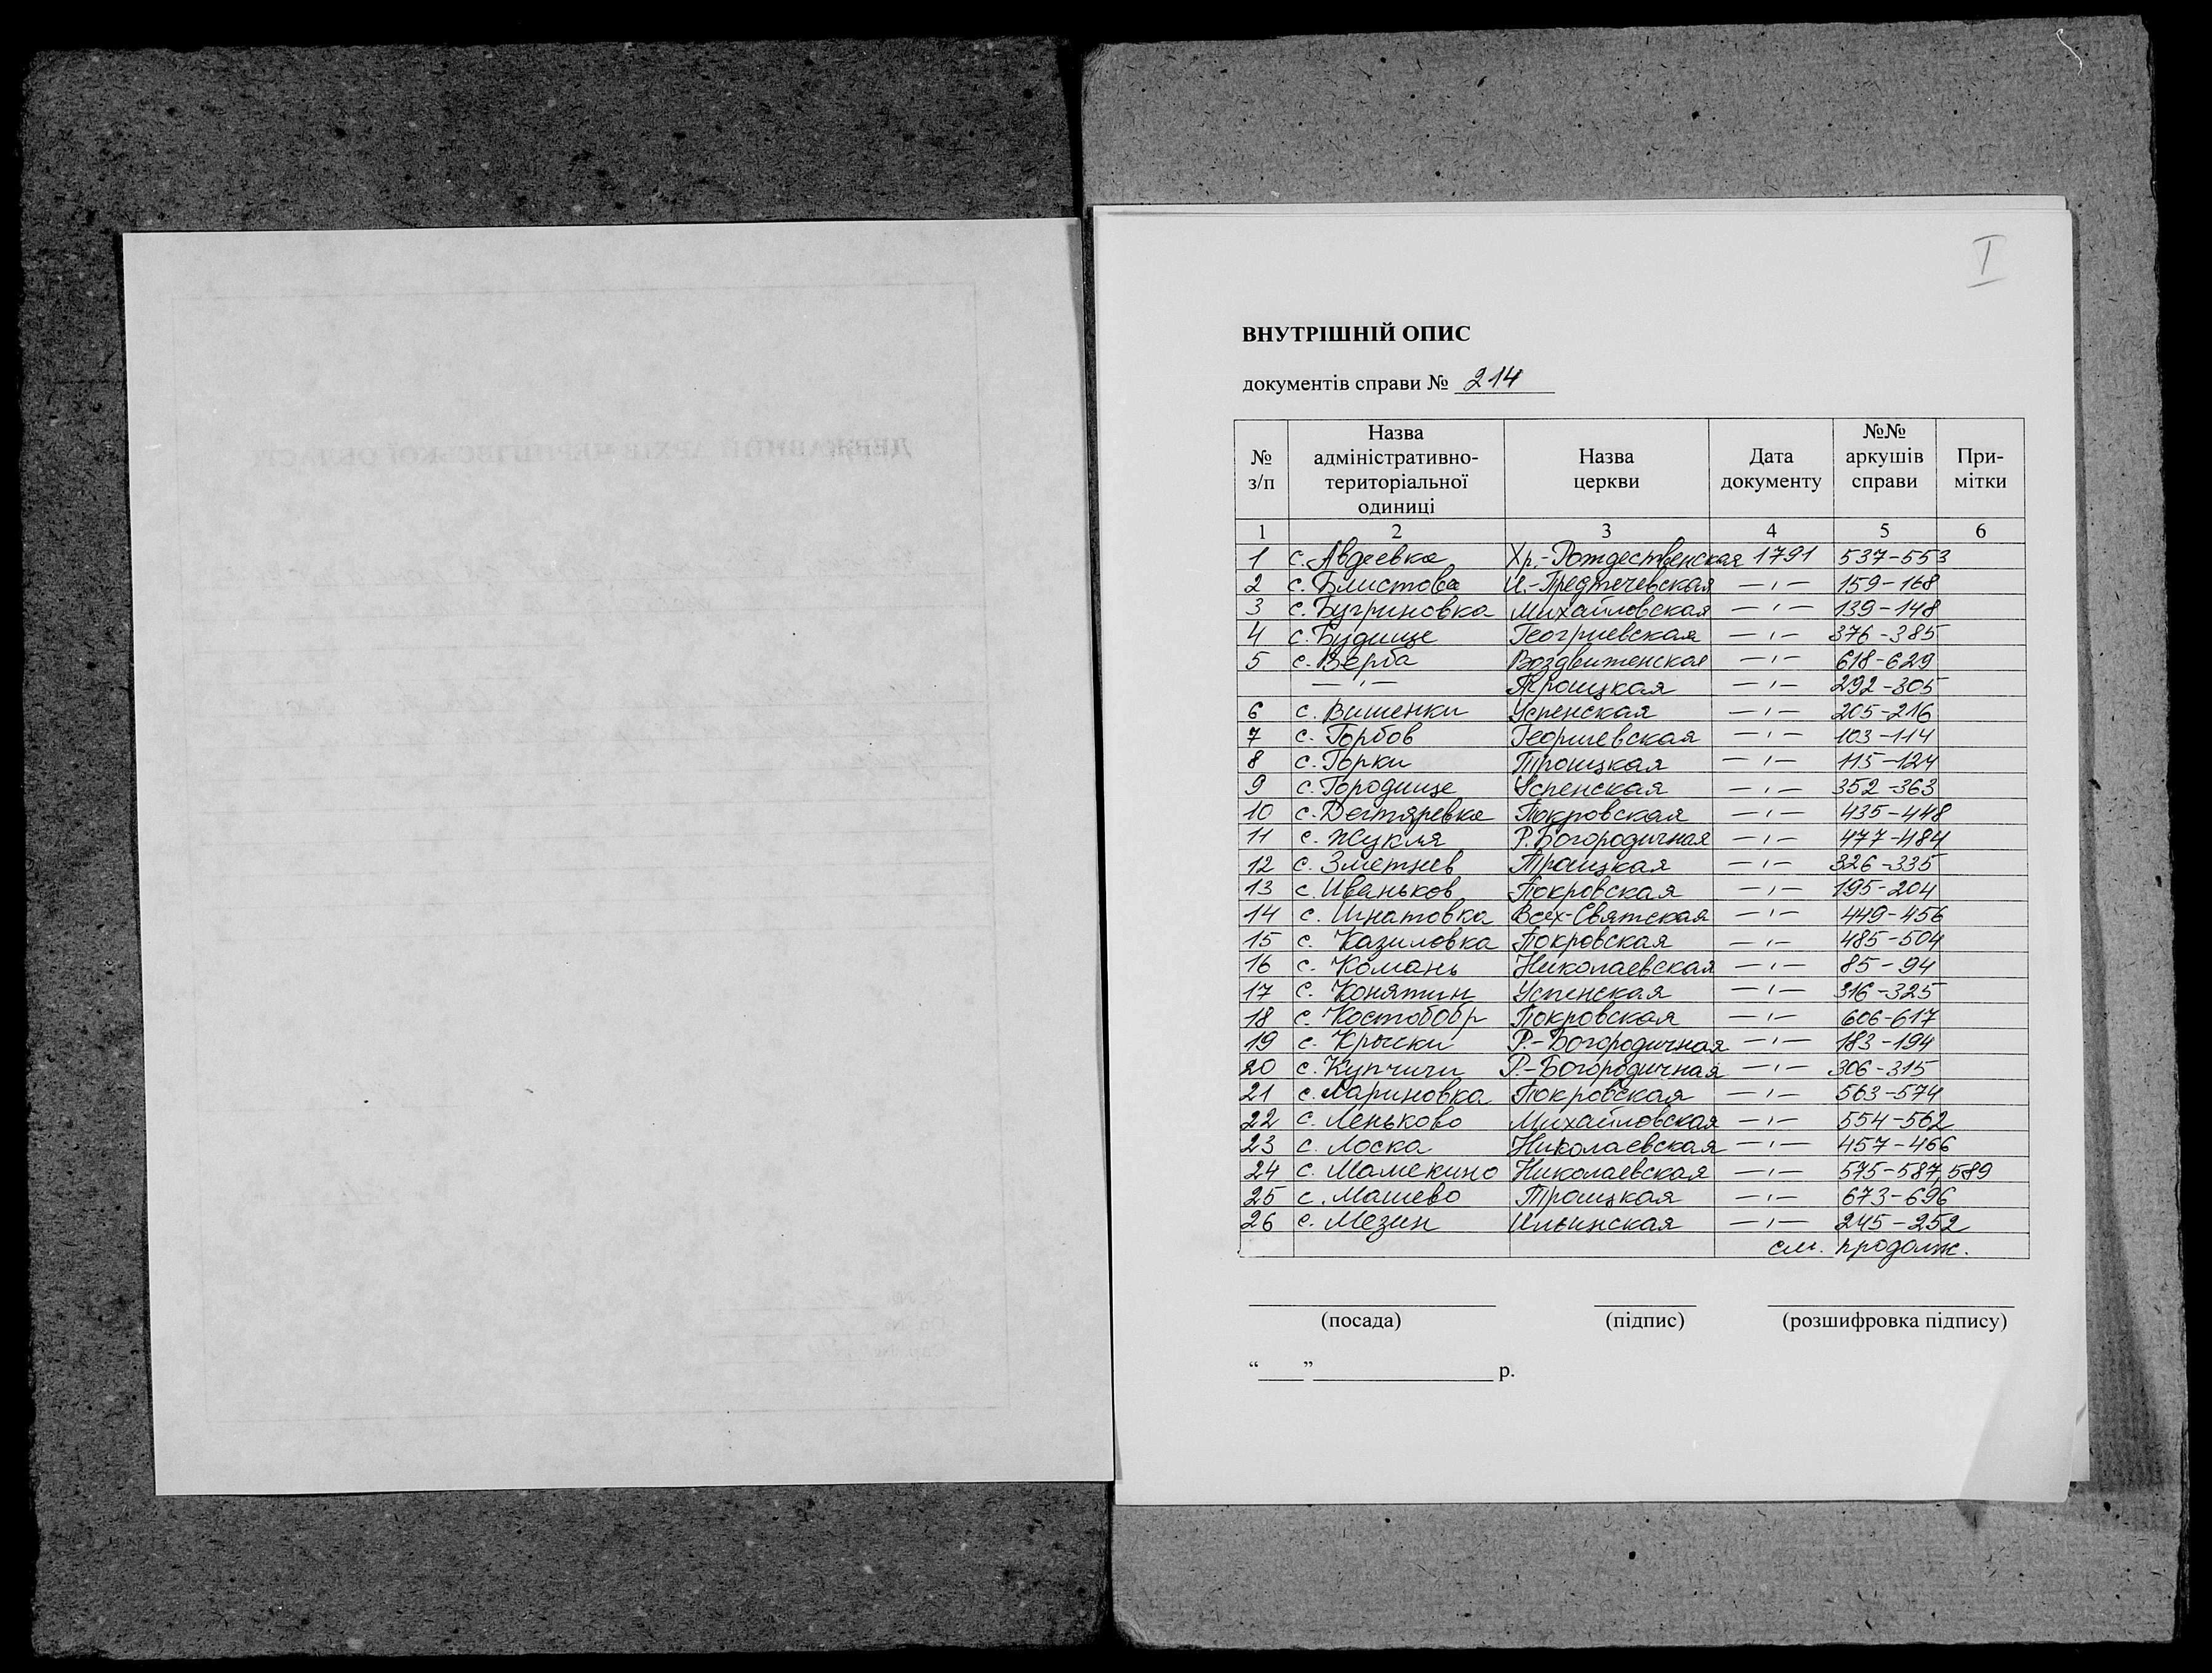 I
ВНУТРІШНІЙ ОПИС
документів справи № 214
№ з/п | Назва адміністративно-територіальної одиниці | Назва церкви | Дата документу | №№ аркушів справи | При-мітки
1 | 2 | 3 | 4 | 5 | 6
1 с. Авдеевка Хр.-Рождественская 1791 537-553
2 с. Блистова И.-Предтечевская —"— 159-168
3 с. Бугриновка Михайловская —"— 139-148
4 с. Будище Георгиевская —"— 376-385
5 с. Верба Воздвиженская —"— 618-629
—"— Троицкая —"— 292-305
6 с. Вишенки Успенская —"— 205-216
7 с. Горбов Георгиевская —"— 103-114
8 с. Горки Троицкая —"— 115-124
9 с. Городище Успенская —"— 352-363
10 с. Дегтяревка Покровская —"— 435-448
11 с. Жукля Р. Богородичная —"— 477-484
12 с. Зметнев Троицкая —"— 326-335
13 с. Иваньков Покровская —"— 195-204
14 с. Игнатовка Всех-Святская —"— 449-456
15 с. Казиловка Покровская —"— 485-504
16 с. Комань Николаевская —"— 85-94
17 с. Конятин Успенская —"— 316-325
18 с. Костобобр Покровская —"— 606-617
19 с. Крыски Р.-Богородичная —"— 183-194
20 с. Купчичи Р.-Богородичная —"— 306-315
21 с. Лариновка Покровская —"— 563-574
22 с. Леньково Михайловская —"— 554-562
23 с. Лоска Николаевская —"— 457-466
24 с. Мамекино Николаевская —"— 575-587, 589
25 с. Машево Троицкая —"— 673-696
26 с. Мезин Ильинская —"— 245-252
см. продолж.
(посада) (підпис) (розшифровка підпису)
“___”_______________ р.